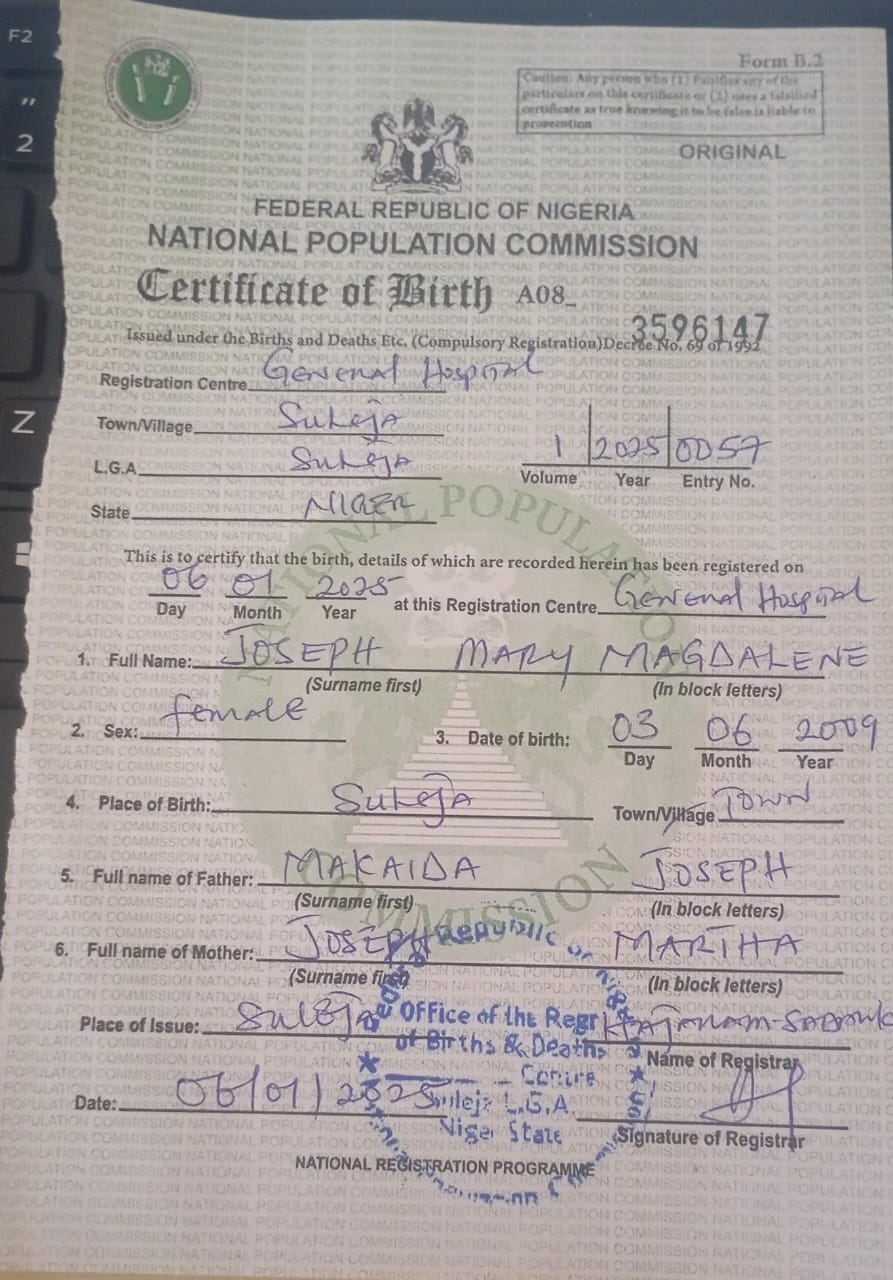 F2
"
2
Z
Form B.2
Caution: Any person who (1) Falsifies any of the
particulars on this certificate or (2) uses a falsified
certificate as true knowing it to be false is liable to
prosecution
ORIGINAL
FEDERAL REPUBLIC OF NIGERIA
NATIONAL POPULATION COMMISSION
Certificate of Birth A08_
3596147
Issued under the Births and Deaths Etc. (Compulsory Registration) Decree No. 69 of 1992
Registration Centre General Hospital
Town/Village Suleja
L.G.A Suleja
1 2025 0057
Volume Year Entry No.
State NIGER
This is to certify that the birth, details of which are recorded herein has been registered on
06 01 2025 at this Registration Centre General Hospital
Day Month Year
1. Full Name: JOSEPH MARY MAGDALENE
(Surname first) (In block letters)
2. Sex: female 3. Date of birth: 03 06 2009
Day Month Year
4. Place of Birth: Suleja Town/Village Town
5. Full name of Father: MAKAIDA JOSEPH
(Surname first) (In block letters)
6. Full name of Mother: JOSEPH MARTHA
(Surname first) (In block letters)
Place of Issue: Suleja
Name of Registrar
Date: 06/01/2025
Signature of Registrar
NATIONAL REGISTRATION PROGRAMME
Republic
Office of the Regr
of Births & Deaths
Centre
Suleja L.G.A.
Niger State
NATIONAL POPULATION COMMISSION